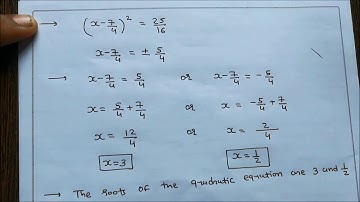 → (x-7/4)² = 25/16
x-7/4 = ± 5/4
→ x-7/4 = 5/4 or x-7/4 = -5/4
x = 5/4 + 7/4 or x = -5/4 + 7/4
x = 12/4 or x = 2/4
x=3 x=1/2
→ The roots of the quadratic equation are 3 and 1/2